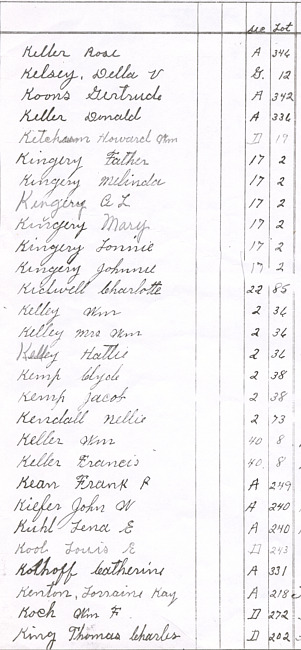 Sec Lot
Keller Rose A 346
Kelsey, Della V G. 12
Koons Gertrude A 342
Keller Donald A 336
Ketchum Howard Wm D 19
Kingery Father 17 2
Kingery Melinda 17 2
Kingery A L 17 2
Kingery Mary 17 2
Kingery Lonnie 17 2
Kingery Johnnie 17 2
Kidwell Charlotte 22 85
Kelley Wm 2 36
Kelley Mrs Wm 2 36
Kelley Hattie 2 36
Kemp Clyde 2 38
Kemp Jacob 2 38
Kendall Nellie 2 73
Keller Wm 40 8
Keller Francis 40 8
Kean Frank P A 249
Kiefer John W A 240
Kuhl Lena E A 240
Koob Louis E D 243
Kolhoff Catherine A 331
Kenton, Lorraine Kay A 218
Koch Wm F. D 272
King Thomas Charles D 202